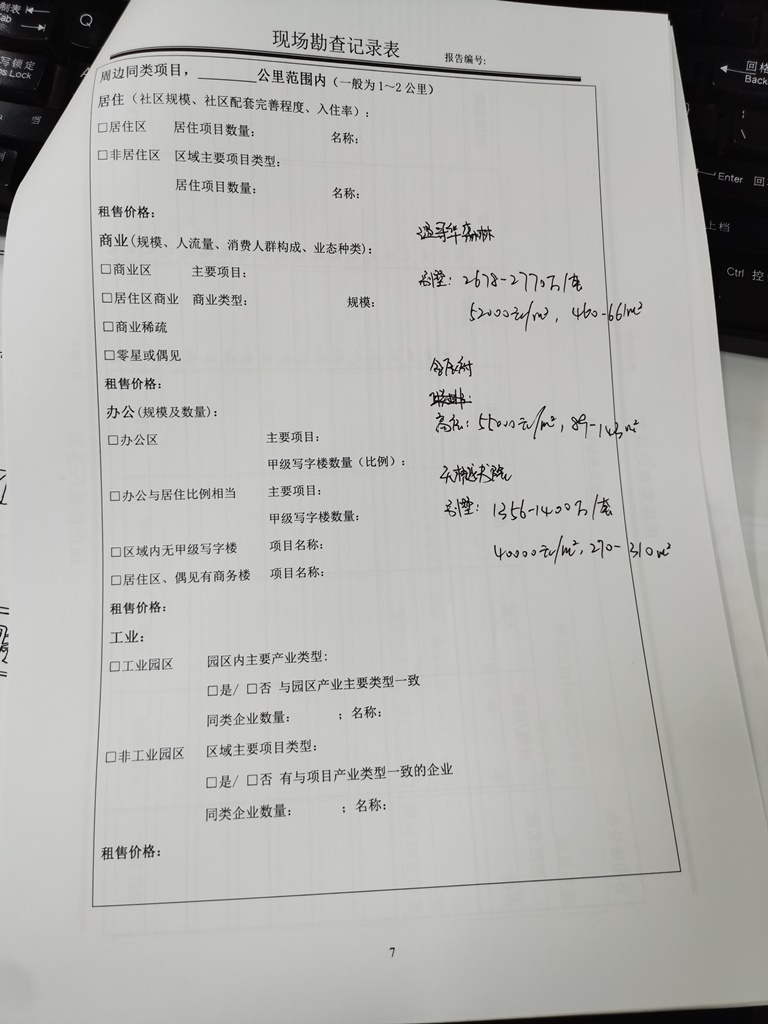 现场勘查记录表
报告编号:
周边同类项目，______公里范围内（一般为1～2公里）
居住（社区规模、社区配套完善程度、入住率）:
□居住区 居住项目数量: 名称:
□非居住区 区域主要项目类型:
居住项目数量: 名称:
租售价格:
商业(规模、人流量、消费人群构成、业态种类):
□商业区 主要项目:
别墅: 2678-2770万/套
□居住区商业 商业类型: 规模:
52000元/m², 460-661m²
□商业稀疏
□零星或偶见
租售价格:
办公(规模及数量):
高层: 55000元/m², 89-143m²
□办公区 主要项目:
甲级写字楼数量(比例):
□办公与居住比例相当 主要项目:
别墅: 1356-1400万/套
甲级写字楼数量:
□区域内无甲级写字楼 项目名称:
40000元/m², 270-310m²
□居住区、偶见有商务楼 项目名称:
租售价格:
工业:
□工业园区 园区内主要产业类型:
□是/ □否 与园区产业主要类型一致
同类企业数量: ; 名称:
□非工业园区 区域主要项目类型:
□是/ □否 有与项目产业类型一致的企业
同类企业数量: ; 名称:
租售价格:
7